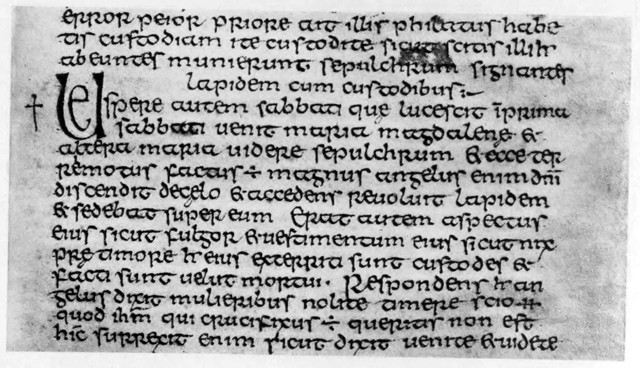 error peior priore ait illis philatus habe
tis custodiam ite custodite sicut scitis illi ħ
abeuntes munierunt sepulchrum signantes
lapidem cum custodibus:~
Uespere autem sabbati que lucescit īprima
sabbati uenit maria magdalene &
altera maria uidere sepulchrum & ecce ter
remotus factus ÷ magnus angelus enim dn̄i
discendit decelo & accedens reuoluit lapidem
& sedebat super eum Erat autem aspectus
eius sicut fulgor & uestimentum eius sicut nix
pre timore ħ eius exterriti sunt custodes &
facti sunt uelut mortui · Respondens ħ an
gelus dixit mulieribus nolite timere scio
quod ih̄m qui crucifixus ÷ queritis non est
hic surrexit enim sicut dixit uenite & uidete